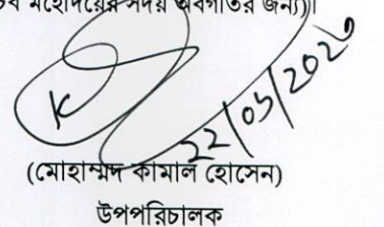 মহোদয়ের সদয় অবগতির জন্য)।
(মোহাম্মদ কামাল হোসেন)
উপপরিচালক